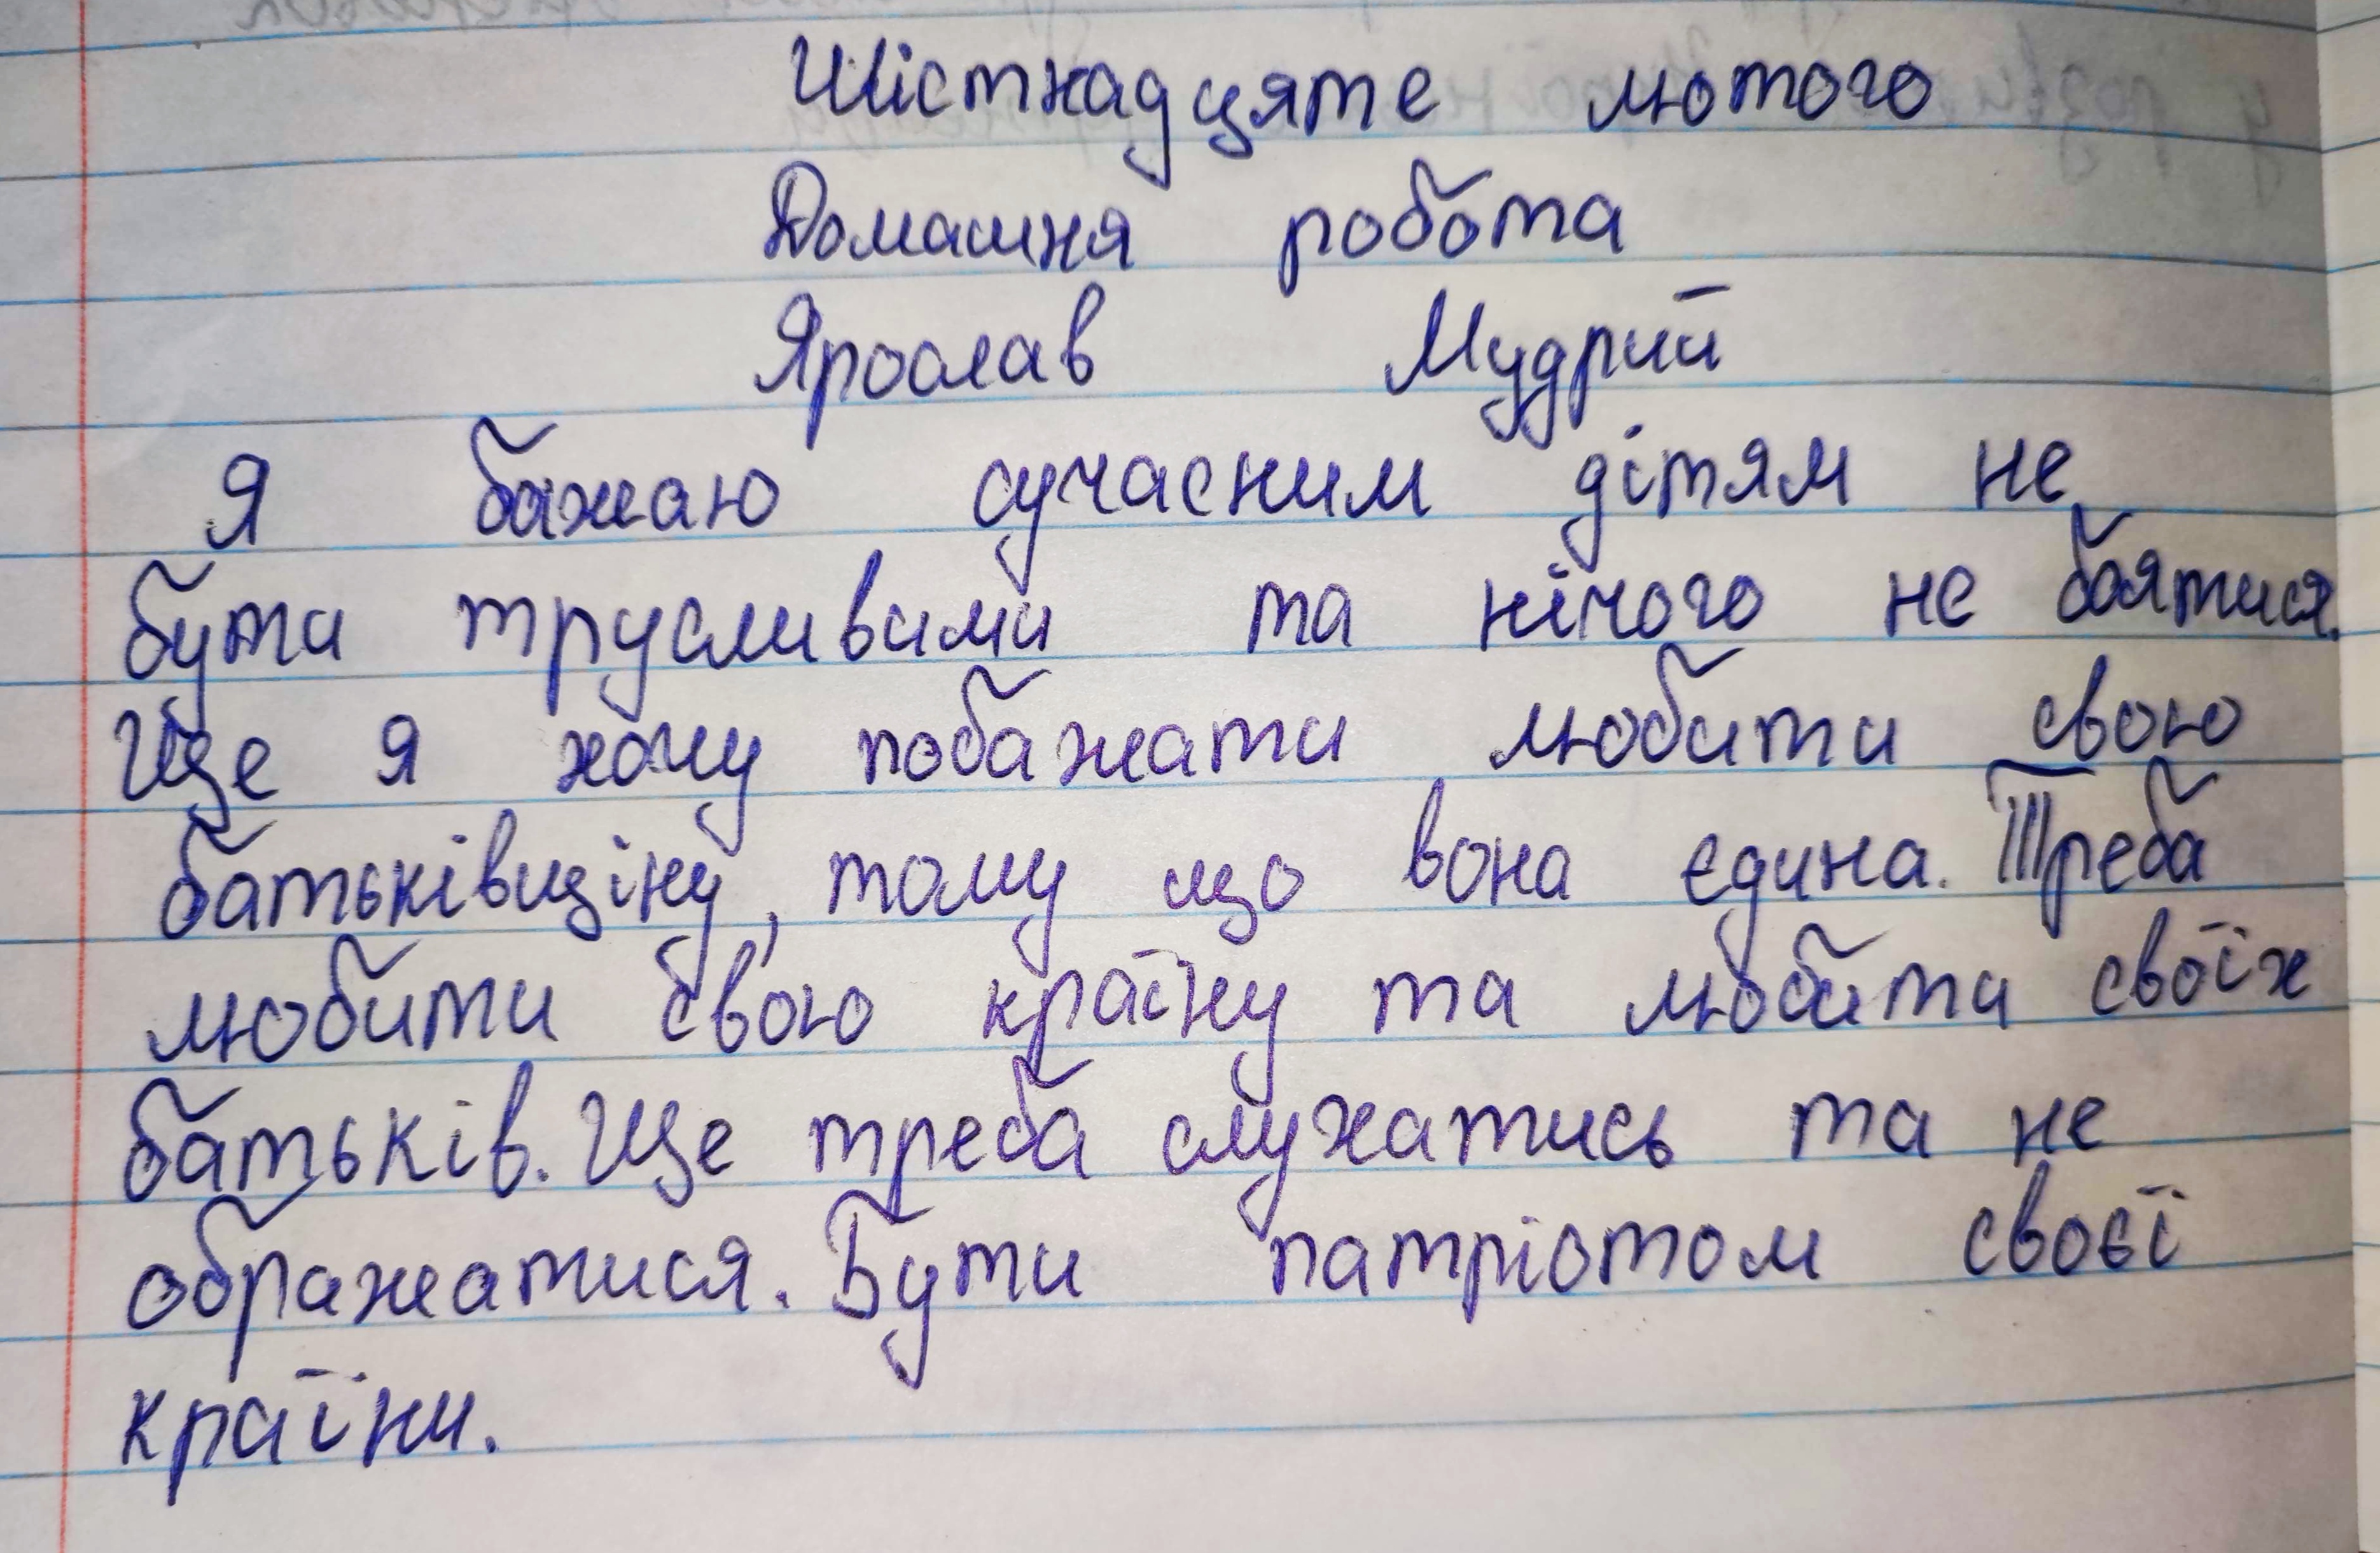 Шістнадцяте лютого
Домашня робота
Ярослав Мудрий
Я бажаю сучасним дітям не
бути трусливими та нічого не боятися.
Ще я хочу побажати любити свою
батьківщіну, тому що вона єдина. Треба
любити свою країну та любити своїх
батьків. Ще треба слухатись та не
ображатися. Бути патріотом своєї
країни.